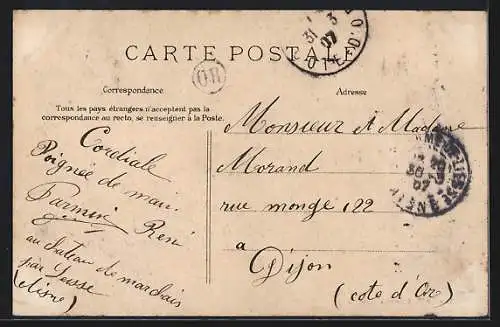 CARTE POSTALE
31 3
07
COTE-D'OR
OR
Correspondance
Adresse
Tous les pays étrangers n'acceptent pas la
correspondance au recto, se renseigner à la Poste.
Cordiale
Poignée de main
René
Monsieur et Madame
Morand
rue monge 122
a
Dijon
(cote d'Or)
au chateau de marchais
par Liesse
(aisne)
30
07
AISNE